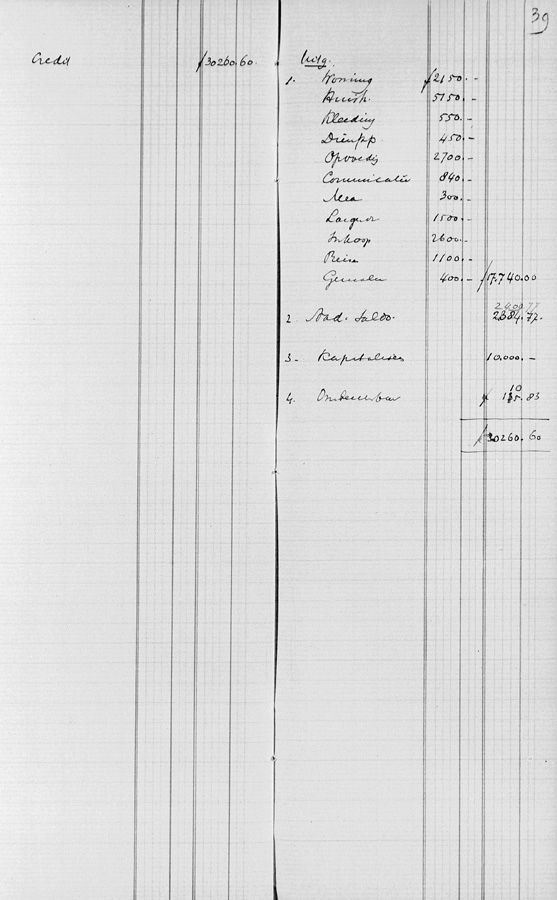 39
Credit ƒ30260.60.
Uitg.
1. Woning ƒ2150.-
Huish. 5150.-
Kleeding 550.-
450.-
Opvoedg 2700.-
Communicatie 840.-
300.-
1500.-
Inkoop 2600.-
Reizen 1100.-
400.- ƒ17.740.00
2400.77
2. Nad. Saldo. 2384.77.
3. Kapitaliseer 10.000.-
10
4. Ondeelbaar 85.83
ƒ30260.60